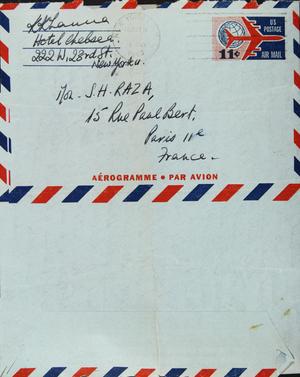 KK Hanna
Hotel Chelsea.
222 W. 23rd St.
New York 11.
US
POSTAGE
11¢
AIR MAIL
S.H. RAZA,
15 Rue Paul Bert,
Paris 11e
France
AÉROGRAMME • PAR AVION